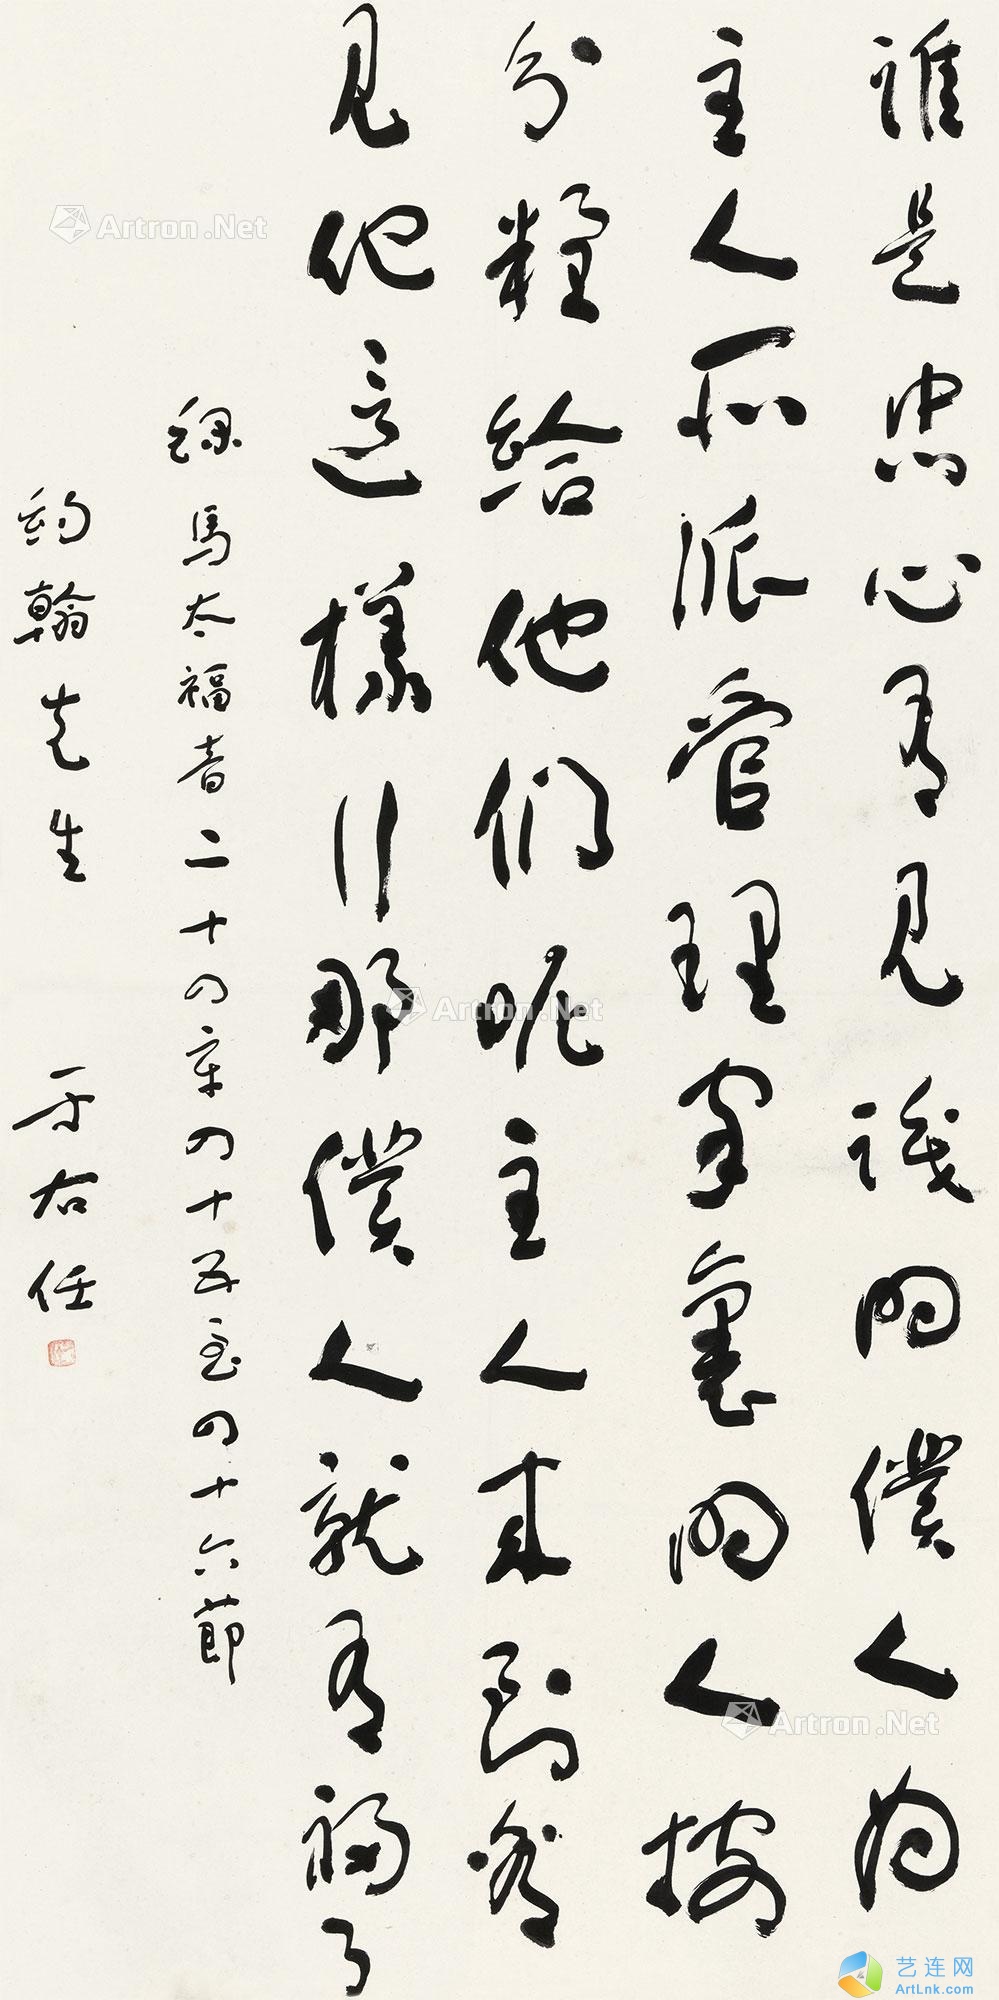 誰是忠心有見識的僕人為
主人所派管理家裏的人按
分糧給他們呢主人來到看
見他這樣行那僕人就有福了
錄馬太福音二十四章四十五至四十六節
約翰先生 于右任
Artron.Net
Artron.Net
Artron.Net
艺连网
ArtLnk.com